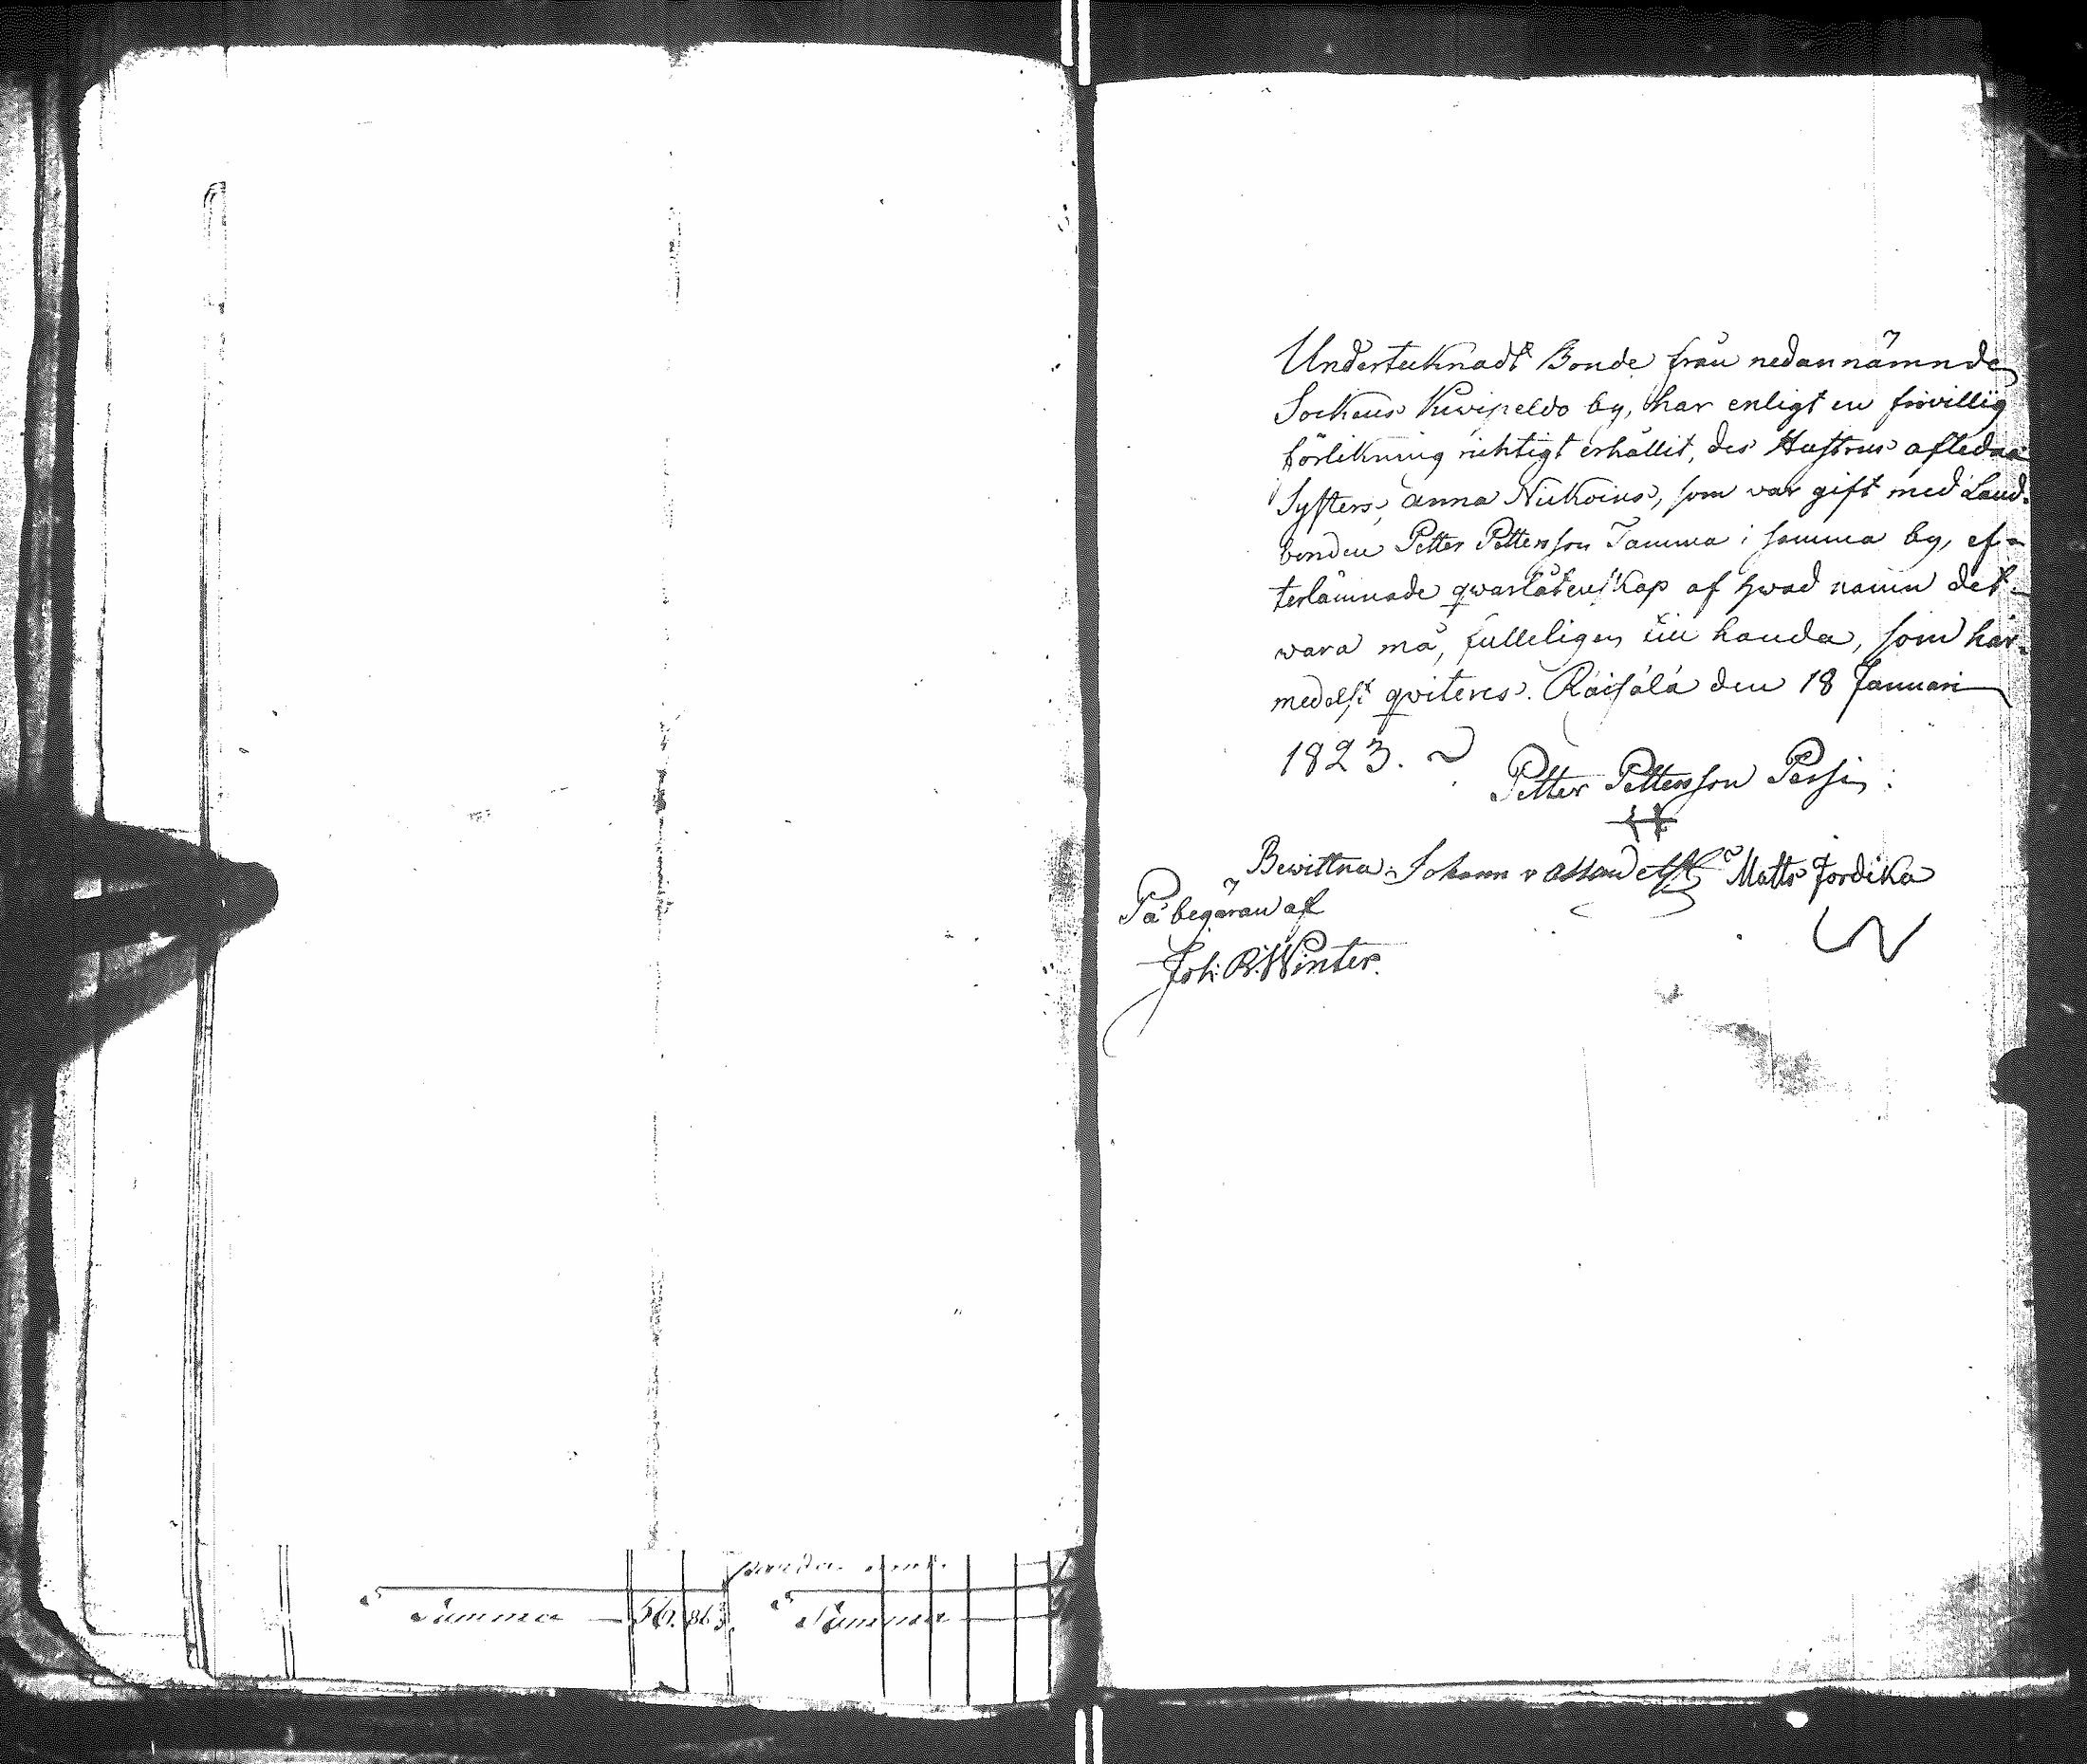 Undertecknadt Bonde från nedannämnde
Sockens Kiwipeldo by, har enligt en frivillig
förlikning richtigt erhållit, des Hustrus afledna
Systers, Anna Nickoins, som var gift med Land-
bonden Petter Pettersson Tamma i samma by, ef-
terlämnade qwarlåtenskap af hwad namn det
wara må, fulleligen till handa, som här-
medelst qviteres. Räisälä den 18 Januari
1823.
Petter Pettersson Persi
Bewittna: Johann Matts Jordika
På begäran af
Joh: R. Winter.
Summa 56. 86 Summa